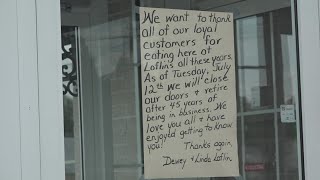 We want to thank
all of our loyal
customers for
eating here at
Loflins all these years.
As of Tuesday, July
12th we will close
our doors & retire
after 45 years of
being in business. We
love you all & have
enjoyed getting to know
you!
Thanks again,
Dewey & Linda Loflin